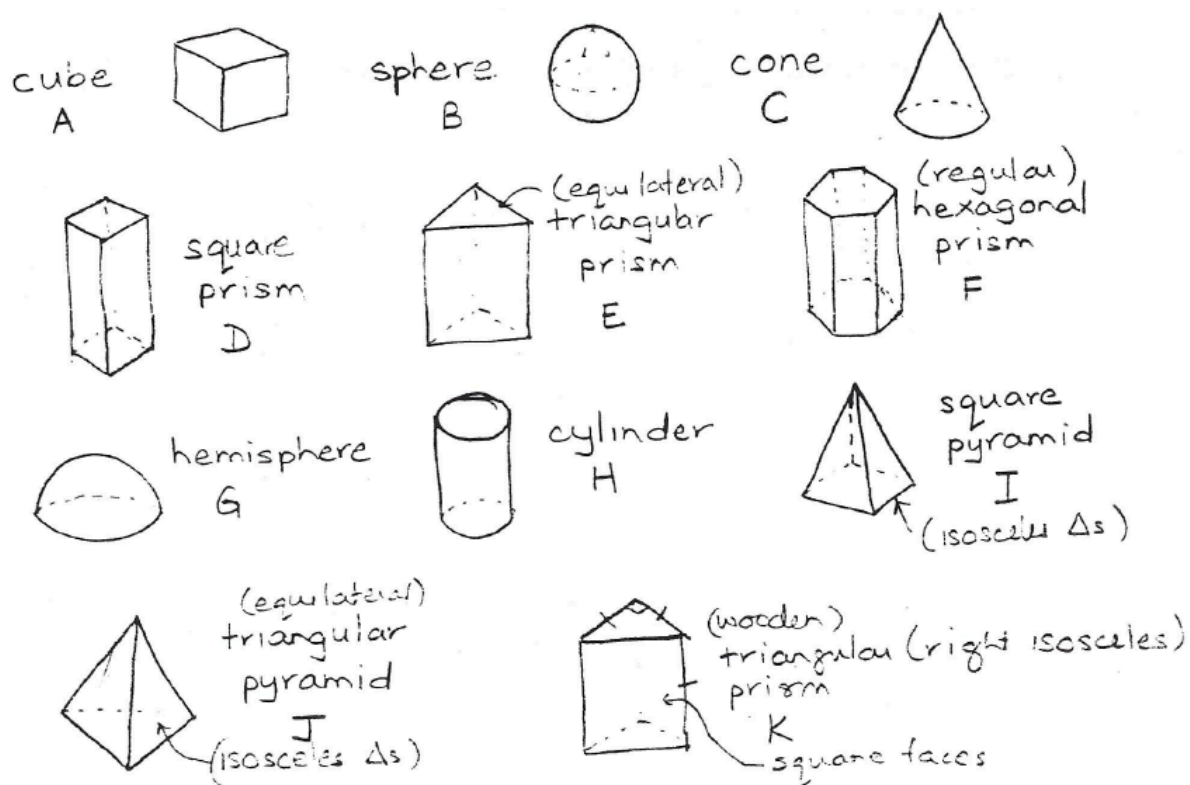 cube
A
sphere
B
cone
C
square
prism
D
(equilateral)
triangular
prism
E
(regular)
hexagonal
prism
F
hemisphere
G
cylinder
H
square
pyramid
I
(isosceles Δs)
(equilateral)
triangular
pyramid
J
(isosceles Δs)
(wooden)
triangular (right isosceles)
prism
K
square faces